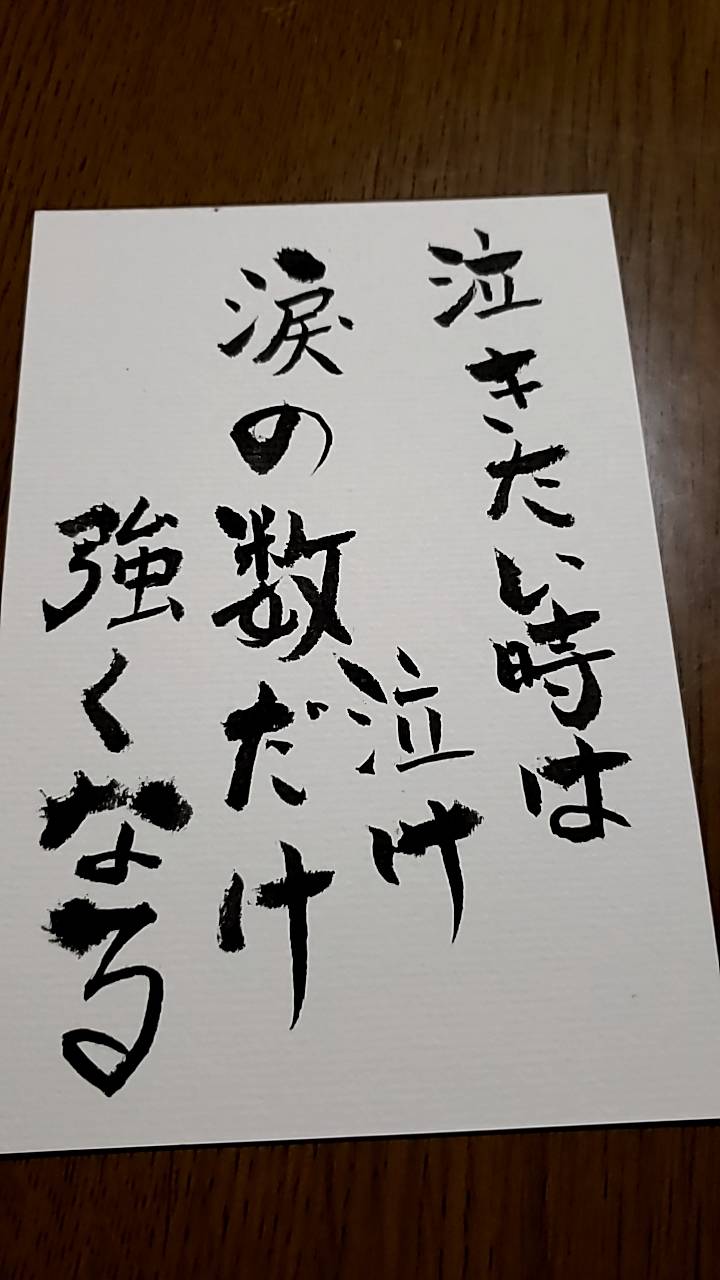 泣きたい時は
泣け
涙の数だけ
強くなる